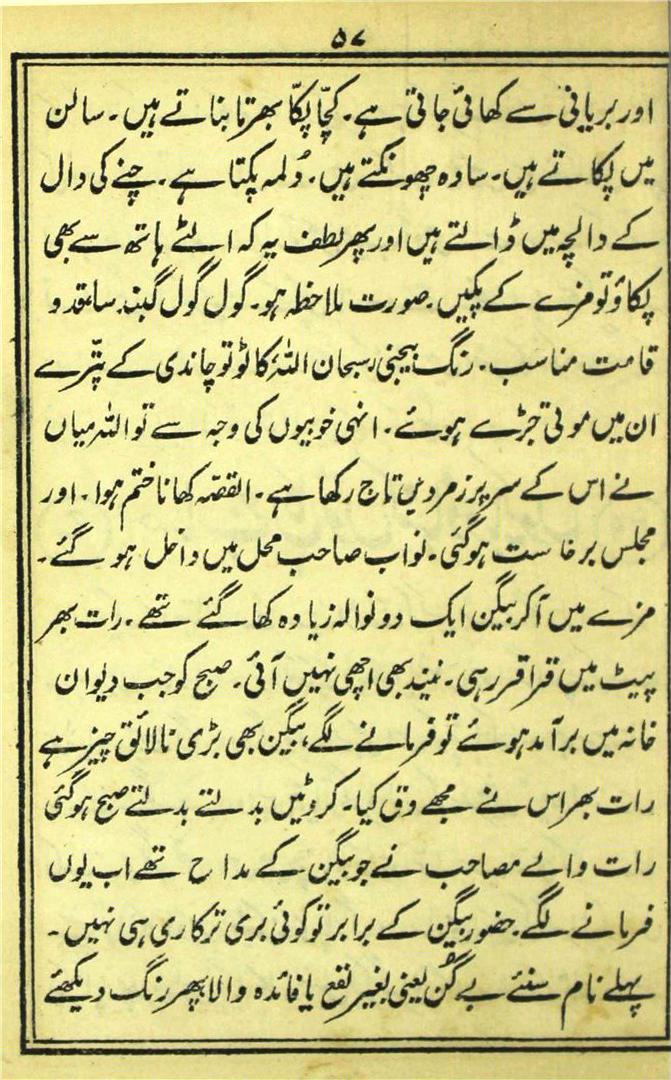 ۵۷
اور بریانی سے کھائی جاتی ہے۔ کچّا پکّا بھرتا بناتے ہیں۔ سالن
میں پکاتے ہیں۔ سادہ چھونکتے ہیں۔ دُلمہ پکتا ہے۔ چنے کی دال
کے دالچہ میں ڈالتے ہیں اور پھر لطف یہ کہ الٹے ہاتھ سے بھی
پکاؤ تو مزے کے پکیں۔ صورت ملاحظہ ہو۔ گول گول گنبد سا، قد و
قامت مناسب۔ رنگ بیجنی، سبحان اللہ، کاٹو تو چاندی کے پتّرے
ان میں موتی جڑے ہوئے۔ انہی خوبیوں کی وجہ سے تو اللہ میاں
نے اس کے سر پر زمردیں تاج رکھا ہے۔ القصّہ کھانا ختم ہوا۔ اور
مجلس برخاست ہوگئی۔ نواب صاحب محل میں داخل ہو گئے۔
مزے میں آکر بیگن ایک دو نوالہ زیادہ کھا گئے تھے۔ رات بھر
پیٹ میں قراقر رہی۔ نیند بھی اچھی نہیں آئی۔ صبح کو جب دیوان
خانہ میں برآمد ہوئے تو فرمانے لگے، بیگن بھی بڑی نالائق چیز ہے
رات بھر اس نے مجھے دق کیا۔ کروٹیں بدلتے بدلتے صبح ہوگئی
رات والے مصاحب نے جو بیگن کے مداح تھے اب یوں
فرمانے لگے۔ حضور بیگن کے برابر تو کوئی بری ترکاری ہی نہیں۔
پہلے نام سنئے بے گُن یعنی بغیر نفع یا فائدہ والا پھر رنگ دیکھئے